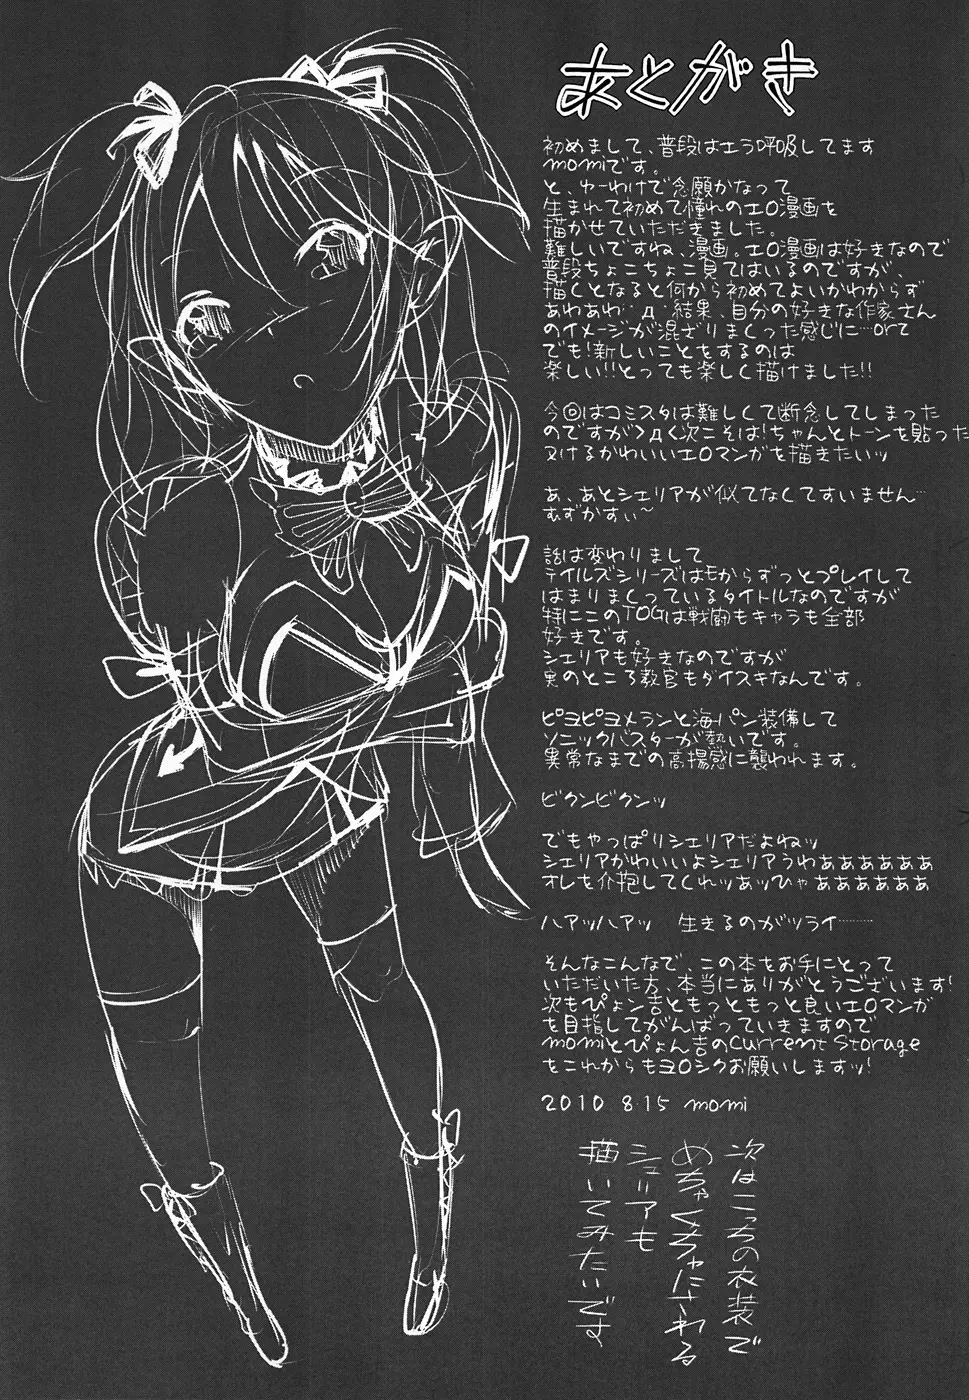 あとがき
初めまして、普段はエラ呼吸してます
momiです。
と、ゆーわけで念願かなって
生まれて初めて憧れのエロ漫画を
描かせていただきました。
難しいですね、漫画。エロ漫画は好きなので
普段ちょこちょこ見てはいるのですが、
描くとなると何から初めてよいかわからず
あわあわ゜д゜結果、自分の好きな作家さん
のイメージが混ざりまくった感じに…orz
でも!新しいことをするのは
楽しい!!とっても楽しく描けました!!
今回はコミスタは難しくて断念してしまった
のですが>д<次こそは!ちゃんとトーンを貼った
ヌけるかわいいエロマンガを描きたいッ
あ、あとシェリアが似てなくてすいません…
むずかすぃ～
話は変わりまして
テイルズシリーズはEからずっとプレイして
はまりまくっているタイトルなのですが
特にこのTOGは戦闘もキャラも全部
好きです。
シェリアも好きなのですが
実のところ教官もダイスキなんです。
ピヨピヨメランと海パン装備して
ソニックバスターが熱いです。
異常なまでの高揚感に襲われます。
ビクンビクンッ
でもやっぱりシェリアだよねッ
シェリアかわいいよシェリアうわぁぁぁぁぁぁ
オレを介抱してくれッあッひゃぁぁぁぁぁぁ
ハアッハアッ　生きるのがツライ………
そんなこんなで、この本をお手にとって
いただいた方、本当にありがとうございます!
次もぴょん吉ともっともっと良いエロマンガ
を目指してがんばっていきますので
momiとぴょん吉のCurrent Storage
をこれからもヨロシクお願いしますッ!
2010 8.15 momi
次はこっちの衣装で
めちゃくちゃにされる
シェリアも
描いてみたいです